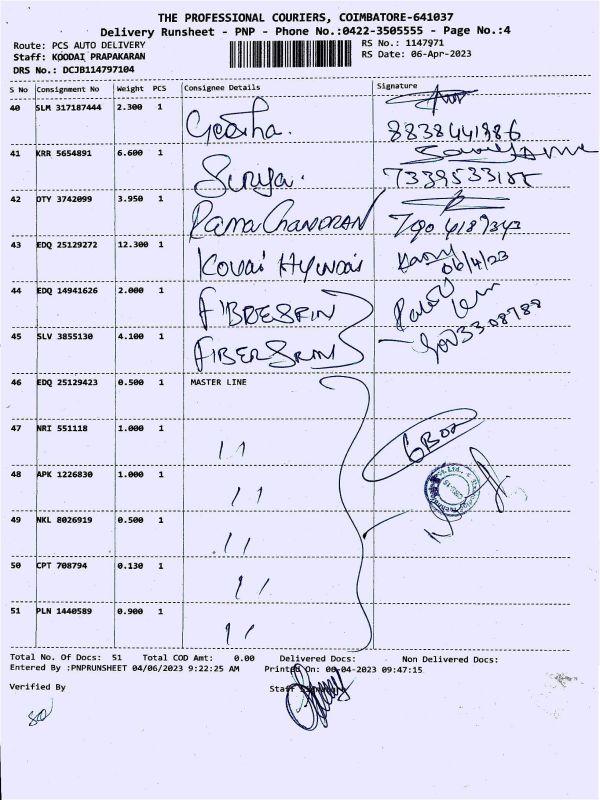 THE PROFESSIONAL COURIERS, COIMBATORE-641037
Delivery Runsheet - PNP - Phone No.:0422-3505555 - Page No.:4
Route: PCS AUTO DELIVERY RS No.: 1147971
Staff: KOODAI PRAPAKARAN RS Date: 06-Apr-2023
DRS No.: DCJB114797104
S No Consignment No Weight PCS Consignee Details Signature
40 SLM 317187444 2.300 1 Geetha. 8838441986
41 KRR 5654891 6.600 1 Surya.
42 OTY 3742099 3.950 1 RamaChandran
43 EDQ 25129272 12.300 1 Kovai 06/4/23
44 EDQ 14941626 2.000 1
45 SLV 3855130 4.100 1
46 EDQ 25129423 0.500 1 MASTER LINE
47 NRI 551118 1.000 1 11
48 APK 1226830 1.000 1 11
49 NKL 8026919 0.500 1 11
50 CPT 708794 0.130 1 11
51 PLN 1440589 0.900 1 11
Total No. Of Docs: 51 Total COD Amt: 0.00 Delivered Docs: Non Delivered Docs:
Entered By :PNPRUNSHEET 04/06/2023 9:22:25 AM Printed On: 09:47:15
Verified By Staff